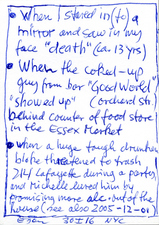 • When I stared in(to) a
mirror and saw in my
face "death" (ca. 13 yrs)
• When the coked-up
guy from bar "Good World"
"showed up" (orchard str.
behind counter of food store
in the Essex Market
• when a huge tough drunken
bloke threatened to trash
214 Lafayette during a party
and Michelle lured him by
promising more alc. out of the
house (see also 2005-12-01)
30 I 16 NYC